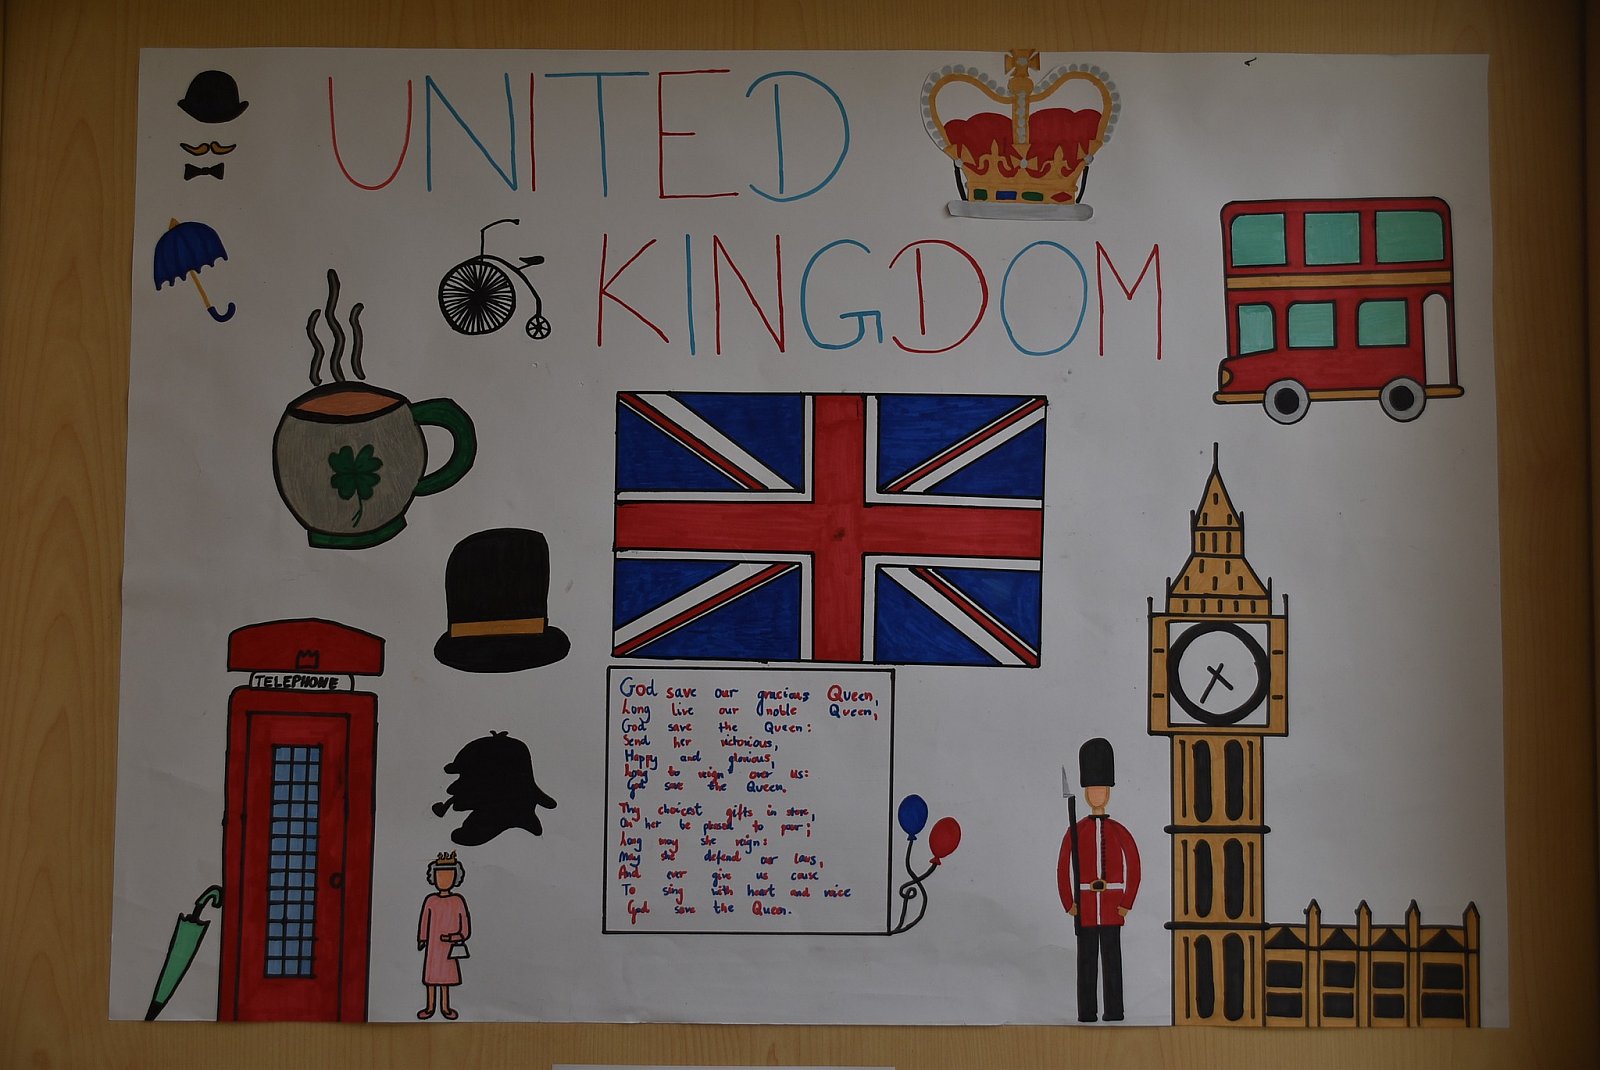 UNITED
KINGDOM
TELEPHONE
God save our gracious Queen,
Long live our noble Queen,
God save the Queen:
Send her victorious,
Happy and glorious,
Long to reign over us:
God save the Queen.
Thy choicest gifts in store,
On her be pleased to pour;
Long may she reign:
May she defend our laws,
And ever give us cause
To sing with heart and voice
God save the Queen.